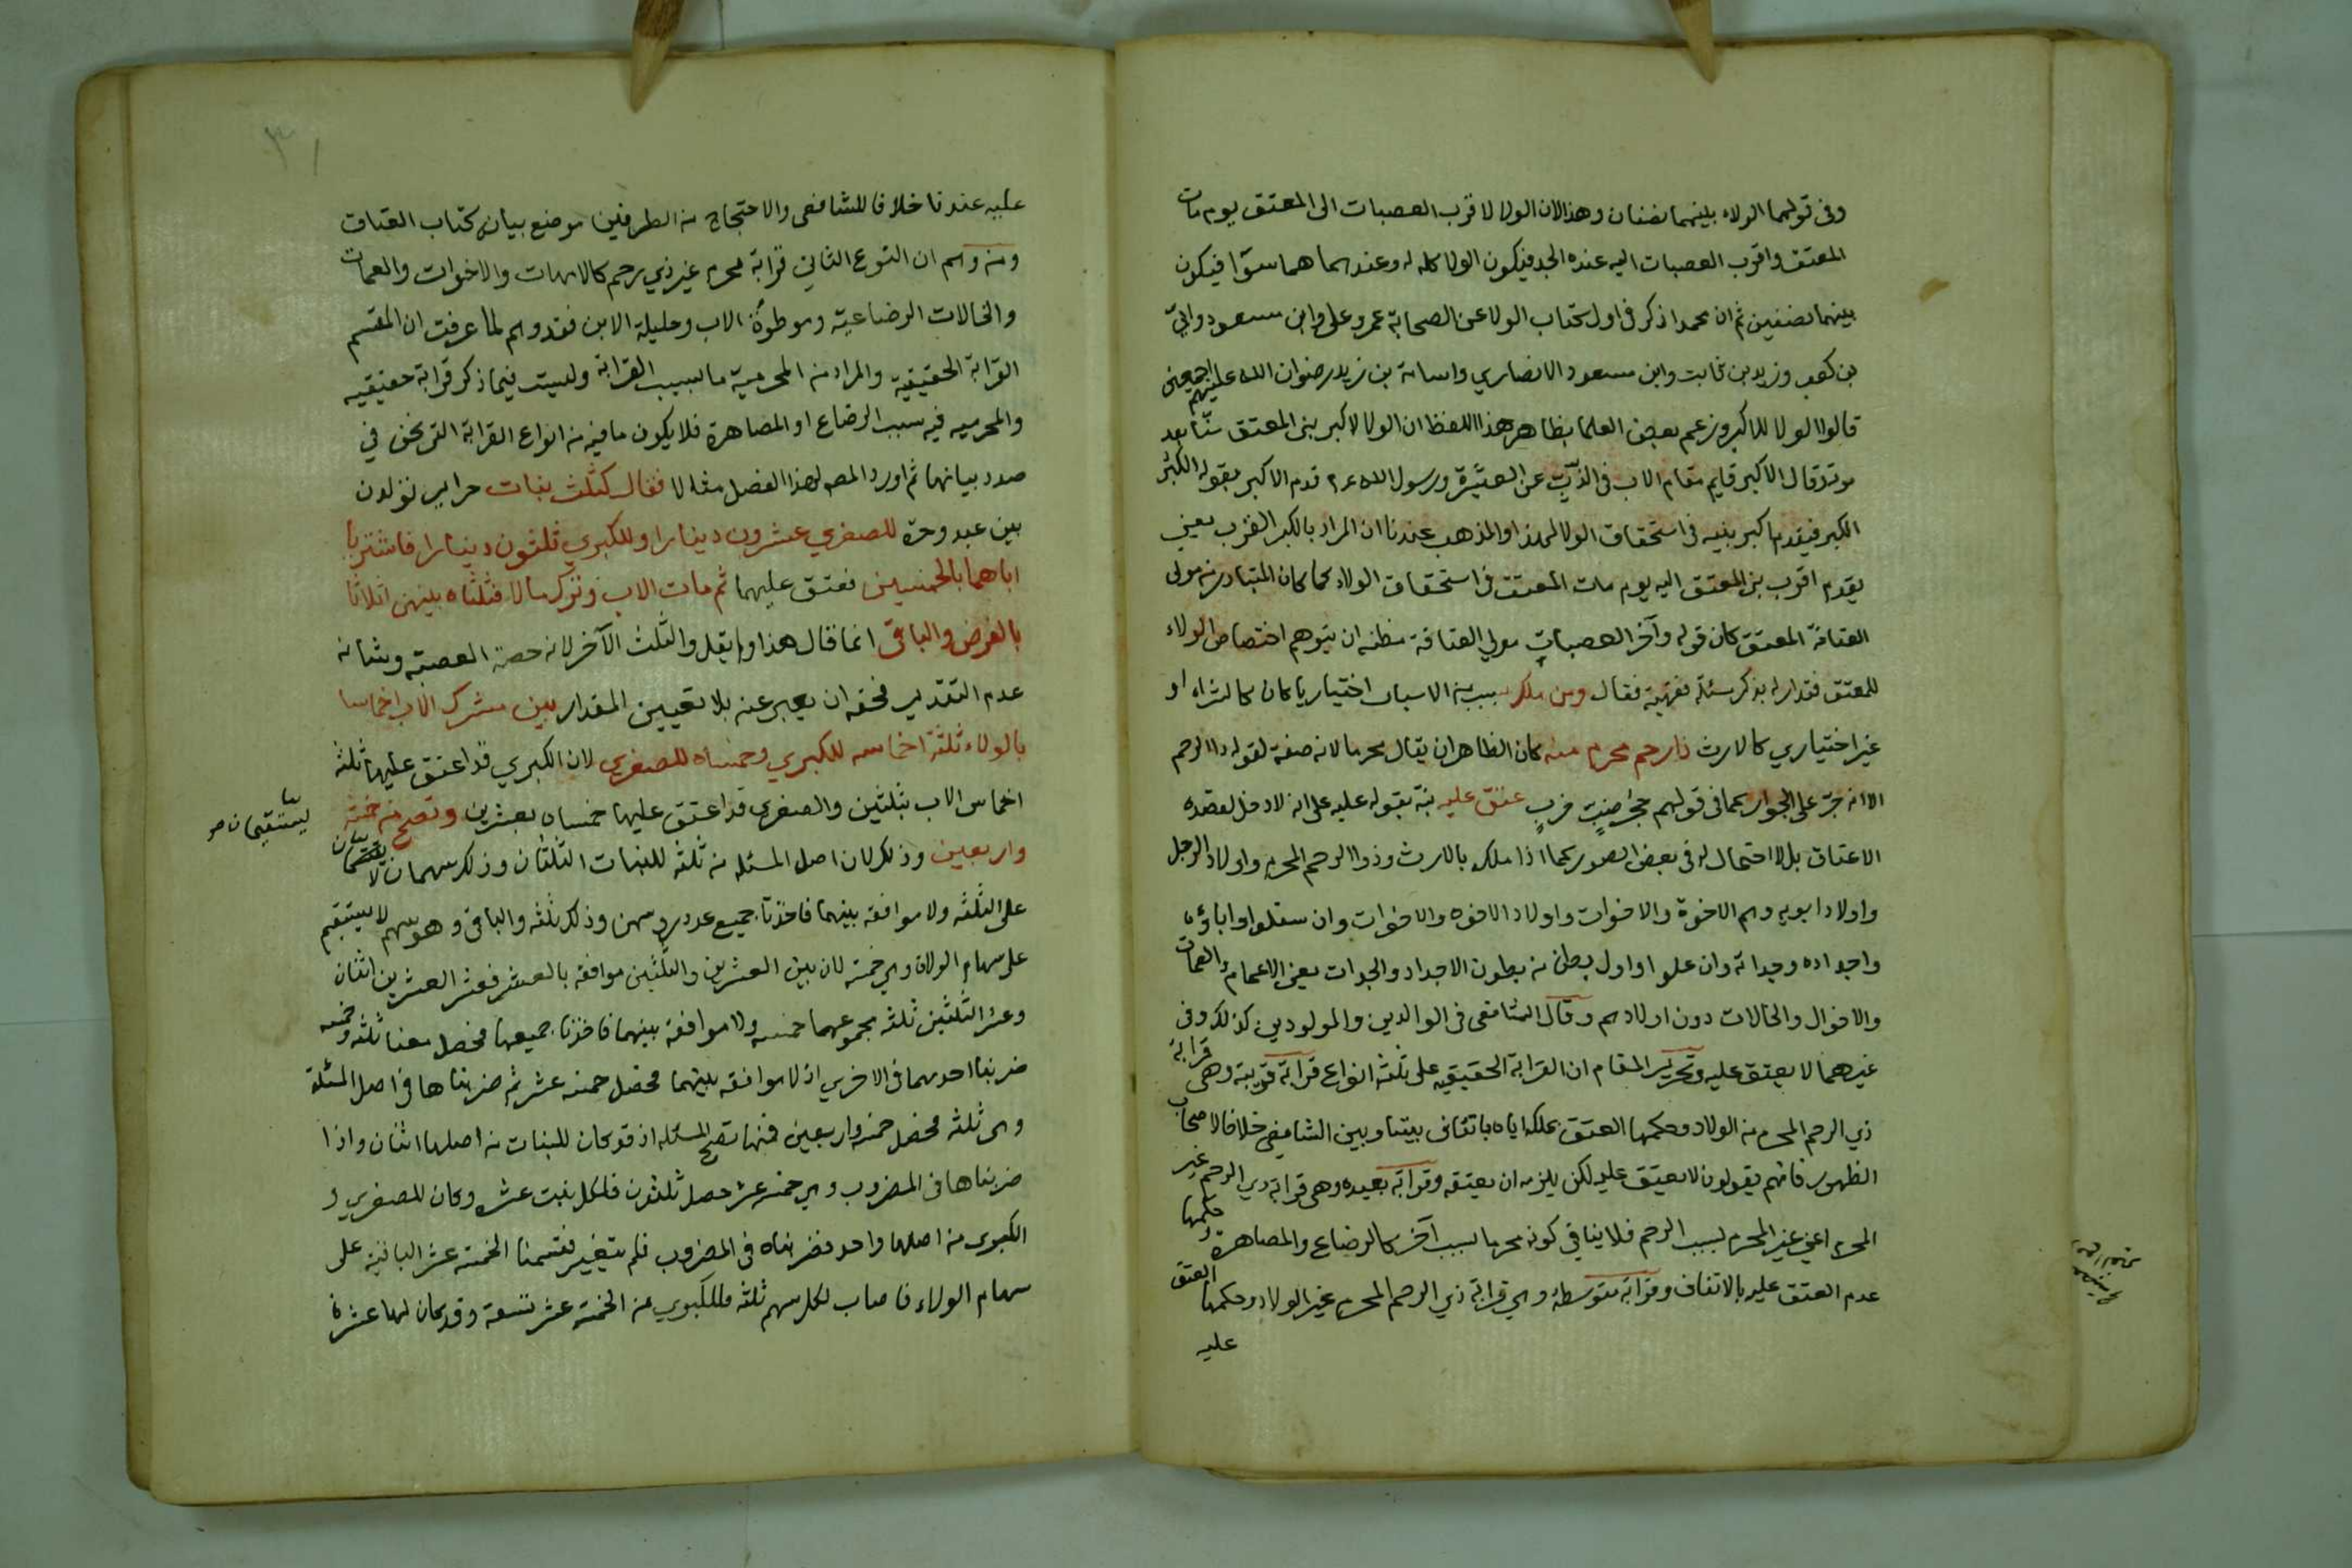 وفى قولهما الولاء بينهما نصفان وهذا لان الولا لاقرب العصبات الى المعتق يوم مات
المعتق واقرب العصبات اليه عنده الجد فيكون الولا كله له وعندهما هما سوا فيكون
بينهما نصفين ثم ان محمدا ذكر فى اول كتاب الولا عن الصحابة عمر وعلى وابن مسعود وابىّ
بن كعب وزيد بن ثابت وابن مسعود الانصاري واسامة بن زيد رضوان الله عليهم اجمعين
قالوا الولا للاكبر وزعم بعض العلما بظاهر هذا اللفظ ان الولا لاكبر بنى المعتق سنّا بعد
موته وقال الاكبر قايم مقام الاب فى الذبّ عن العشيرة ورسول الله عم قدم الاكبر بقوله الكبر
الكبر فيقدم اكبر بنيه فى استحقاق الولا لهذا والمذهب عندنا ان المراد بالكبر القرب يعنى
يقدم اقرب بنى المعتق اليه يوم مات المعتق فى استحقاق الولاء كما كان المتبادر من مولى
العتاقة المعتق كان قوله وآخر العصبات مولي العتاقة مظنه ان يتوهم اختصاص الولاء
للمعتق فتداركه بذكر مسئلة فقهية فقال ومن ملك بسبب من الاسباب اختياريا كان كالشراء او
غير اختياري كالارث ذا رحم محرم منه كان الظاهر ان يقال محرما لانه صفة لقوله ذا الرحم
الا انه جرّ على الجوار كما فى قولهم حجر ضبٍ خربٍ عتق عليه نبّه بقوله عليه على انه لا دخل لقصده
الاعتاق بل لا احتمال له فى بعض الصور كما اذا ملك بالارث وذوا الرحم المحرم واولاد الرجل
واولاد ابويه وهم الاخوة والاخوات واولاد الاخوه والاخوات وان سفلوا واباؤه
واجداده وجداته وان علوا واول بطن من بطون الاجداد والجدات يعنى الاعمام والعمات
والاخوال والخالات دون اولادهم وقال الشافعى فى الوالدين والمولودين كذلك وفى
غيرهما لا يعتق عليه وتحرير المقام ان القرابة الحقيقيه على ثلثه انواع قرابة قريبة وهى قرابة
ذي الرحم المحرم من الولاد وحكمها العتق بملكه اياه باتفاق بيننا وبين الشافعى خلافا لاصحاب
الظهور فانهم يقولون لا يعتق عليه لكن يلزمه ان يعتقه وقرابة بعيده وهى قرابة ذي الرحم غير
المحرم اعنى غير المحرم بسبب الرحم فلا ينافي كونه محرما بسبب آخر كالرضاع والمصاهرة وحكمها
عدم العتق عليه بالاتفاق وقرابة متوسطة وهي قرابة ذي الرحم المحرم غير الولاد وحكمها العتق
عليه
٣١
عليه عندنا خلافا للشافعى والاحتجاج من الطرفين موضع بيانه كتاب العتاق
ومن وهم ان النوع الثاني قرابة محرم غير ذي رحم كالامهات والاخوات والعمات
والخالات الرضاعية وموطوة الاب وحليلة الابن فقد وهم لما عرفت ان المقسم
القرابة الحقيقية والمراد من المحرمية ما بسبب القرابة وليست فيما ذكر قرابة حقيقيه
والمحرميه فيه بسبب الرضاع او المصاهرة فلا يكون ما فيه من انواع القرابة التى نحن في
صدد بيانها ثم اورد المصه لهذا الفصل مثالا فقال كثلث بنات حراير تولدن
بين عبد وحرة للصغري عشرون دينارا وللكبري ثلثون دينارا فاشتريا
اباهما بالخمسين فعتق عليهما ثم مات الاب وترك مالا فثلثاه بينهن اثلاثا
بالفرض والباقى انما قال هذا ولم يقل والثلث الآخر لانه حصة العصبة وشانه
عدم التقدير فحقه ان يعبر عنه بلا تعيين المقدار بين مشتركى الاب اخماسا
بالولاء ثلثة اخماسه للكبري وخمساه للصغرى لان الكبري قد اعتق عليها ثلثة
اخماس الاب بثلثين والصغرى قد اعتق عليها خمساه بعشرين وتصح من خمسة
واربعين وذلك لان اصل المسئله من ثلثه للبنات الثلثان وذلك سهمان لا يستقيمان
يستقيمان صح
على الثلثه ولا موافقه بينهما فاخذنا جميع عدد رؤسهن وذلك ثلثه والباقى وهو سهم لا يستقيم
على سهام الولاء وهي خمسة لان بين العشرين والثلثين موافقه بالعشر فعشر العشرين اثنان
وعشر الثلثين ثلثه مجموعهما خمسه ولا موافقه بينهما فاخذنا جميعها فحصل معنا ثلثه وخمسه
ضربنا احدهما فى الاخري اذ لا موافقه بينهما فحصل خمسه عشر ثم ضربناها فى اصل المسئلة
وهى ثلثه فحصل خمسه واربعين فمنها تصح المسئله اذ قد كان للبنات من اصلها اثنان واذا
ضربناها فى المضروب وهي خمسه عشر حصل ثلثون فلكل بنت عشره وكان للصغري و
الكبرى من اصلها واحد فضربناه فى المضروب فلم يتغير فقسمنا الخمسه عشر الباقية على
سهام الولاء فاصاب لكل سهم ثلثه فللكبري من الخمسة عشر تسعة وقد كان لها عشرة